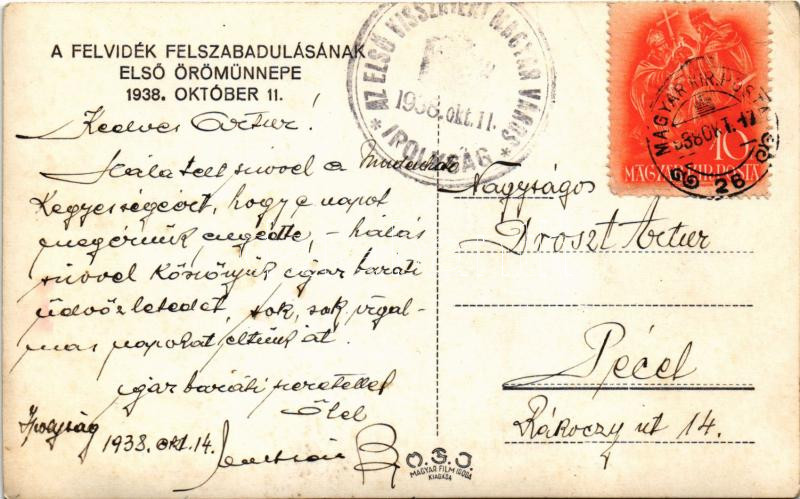 A FELVIDÉK FELSZABADULÁSÁNAK
ELSŐ ÖRÖMÜNNEPE
1938. OKTÓBER 11.
Kedves Artur!
Hála telt szívvel a Mindenható
Kegyességéért, hogy e napot
megérnünk engedte, – hálás
szívvel köszönjük igaz baráti
üdvözletedet, sok, sok izgal-
mas napokat éltünk át.
igaz baráti szeretettel
Ölel
Ipolyság
1938. okt. 14.
AZ ELSŐ VISSZATÉRT MAGYAR VÁROS
1938. okt. 11.
* IPOLYSÁG *
MAGYAR KIR. POSTA
938 OKT. 17
26
10
MAGYAR KIR. POSTA
Nagyságos
Droszt Artur
Pécel
Rákoczy út 14.
O.G.J.
MAGYAR FILM IRODA
KIADÁSA